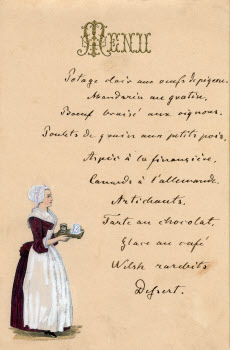 Menu
Potage clair aux oeufs de pigeon.
Mandarin au gratin.
Boeuf braisé aux oignons.
Poulets de grains aux petits pois.
Aspic à la financière.
Canards à l'allemande.
Artichauts.
Tarte au chocolat.
Glace au café
Welsh rarebits
Dessert.